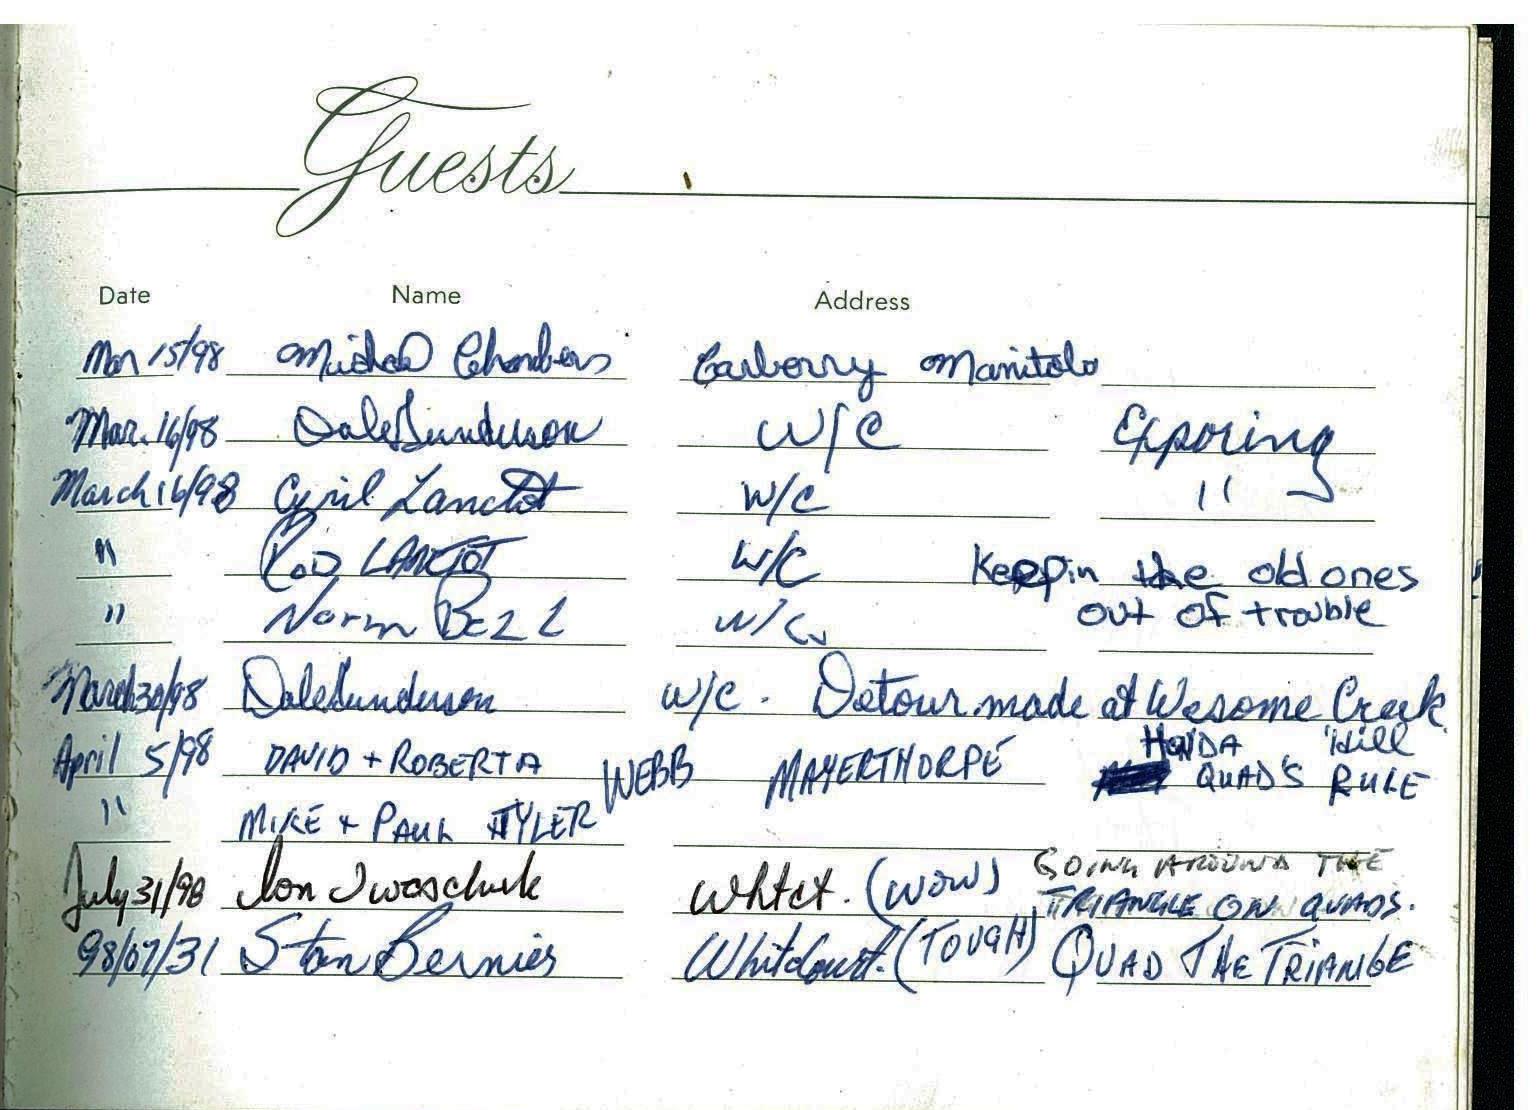 Guests
Date Name Address
Mar 15/98 Michael Chambers Carberry Manitoba
Mar. 16/98 Dale Gunderson W/C Exporing
March 16/98 Cyril Lanctot W/C "
" Rod LANCTOT W/C Keepin the old ones
out of trouble
" Norm W/C
March 30/98 Dale Gunderson W/C. Detour made at Wesome Creek
Hill
April 5/98 DAVID + ROBERTA WEBB MAYERTHORPE HONDA QUAD'S RULE
" MIKE + PAUL TYLER
July 31/98 Ron Iwaschuk Whtct. (WOW) GOING AROUND THE
TRIANGLE ON QUADS.
98/07/31 Stan Bernier Whitcourt. (TOUGH) QUAD THE TRIANGLE